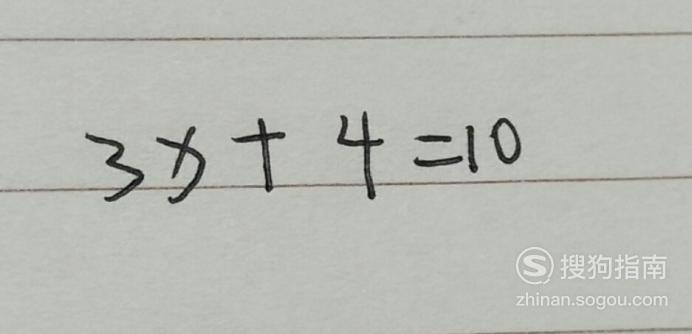 3x + 4 = 10
搜狗指南
zhinan.sogou.com